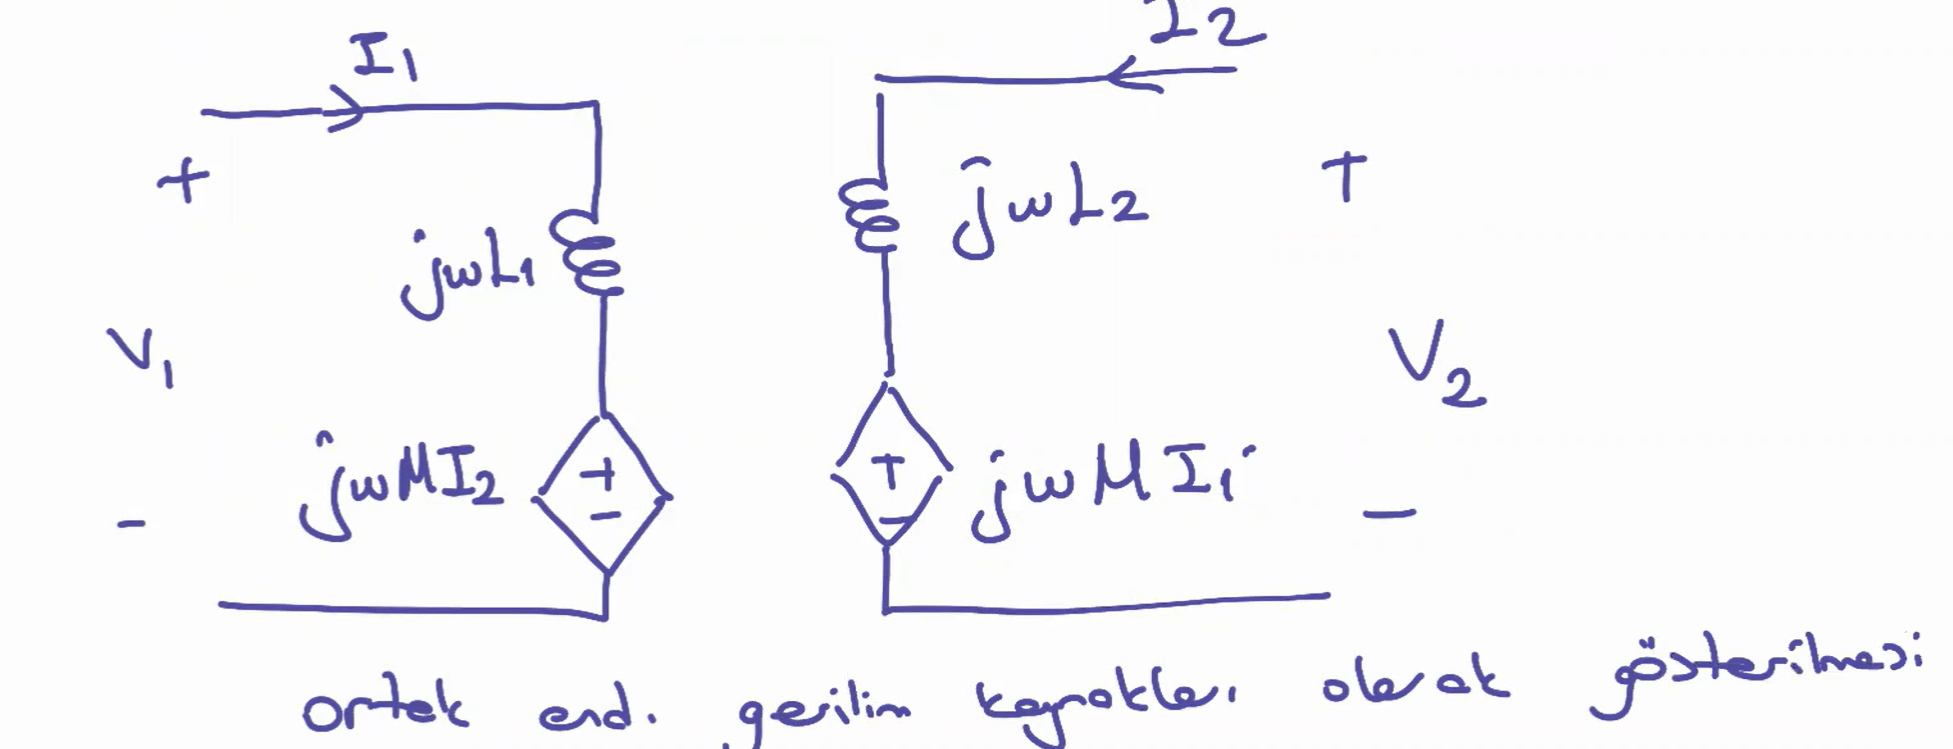 I1
I2
+
+
jwL1
jwL2
V1
V2
jwMI2
+
-
+
-
jwMI1
-
-
ortak end. gerilim kaynakları olarak gösterilmesi